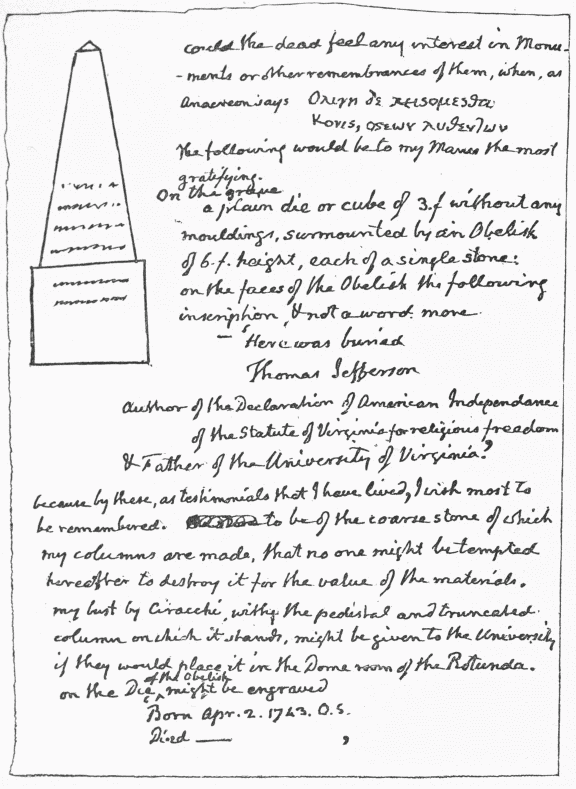 could the dead feel any interest in Monu-
-ments or other remembrances of them, when, as
Anacreon says Ολιγη δε κεισομεσθα
Κονις, οσεων λυθεντων
the following would be to my Manes the most
gratifying.
On the grave
a plain die or cube of 3.f without any
mouldings, surmounted by an Obelisk
of 6.f. height, each of a single stone:
on the faces of the Obelisk the following
inscription, & not a word more
— ‘Here was buried
Thomas Jefferson
author of the Declaration of American Independance
of the Statute of Virginia for religious freedom
& Father of the University of Virginia.’
because by these, as testimonials that I have lived, I wish most to
be remembered. to be of the coarse stone of which
my columns are made, that no one might be tempted
hereafter to destroy it for the value of the materials.
my bust by Ciracchi, with the pedestal and truncated
column on which it stands, might be given to the University
if they would place it in the Dome room of the Rotunda.
of the Obelisk
on the Die might be engraved
Born Apr. 2. 1743. O.S.
Died —— ,